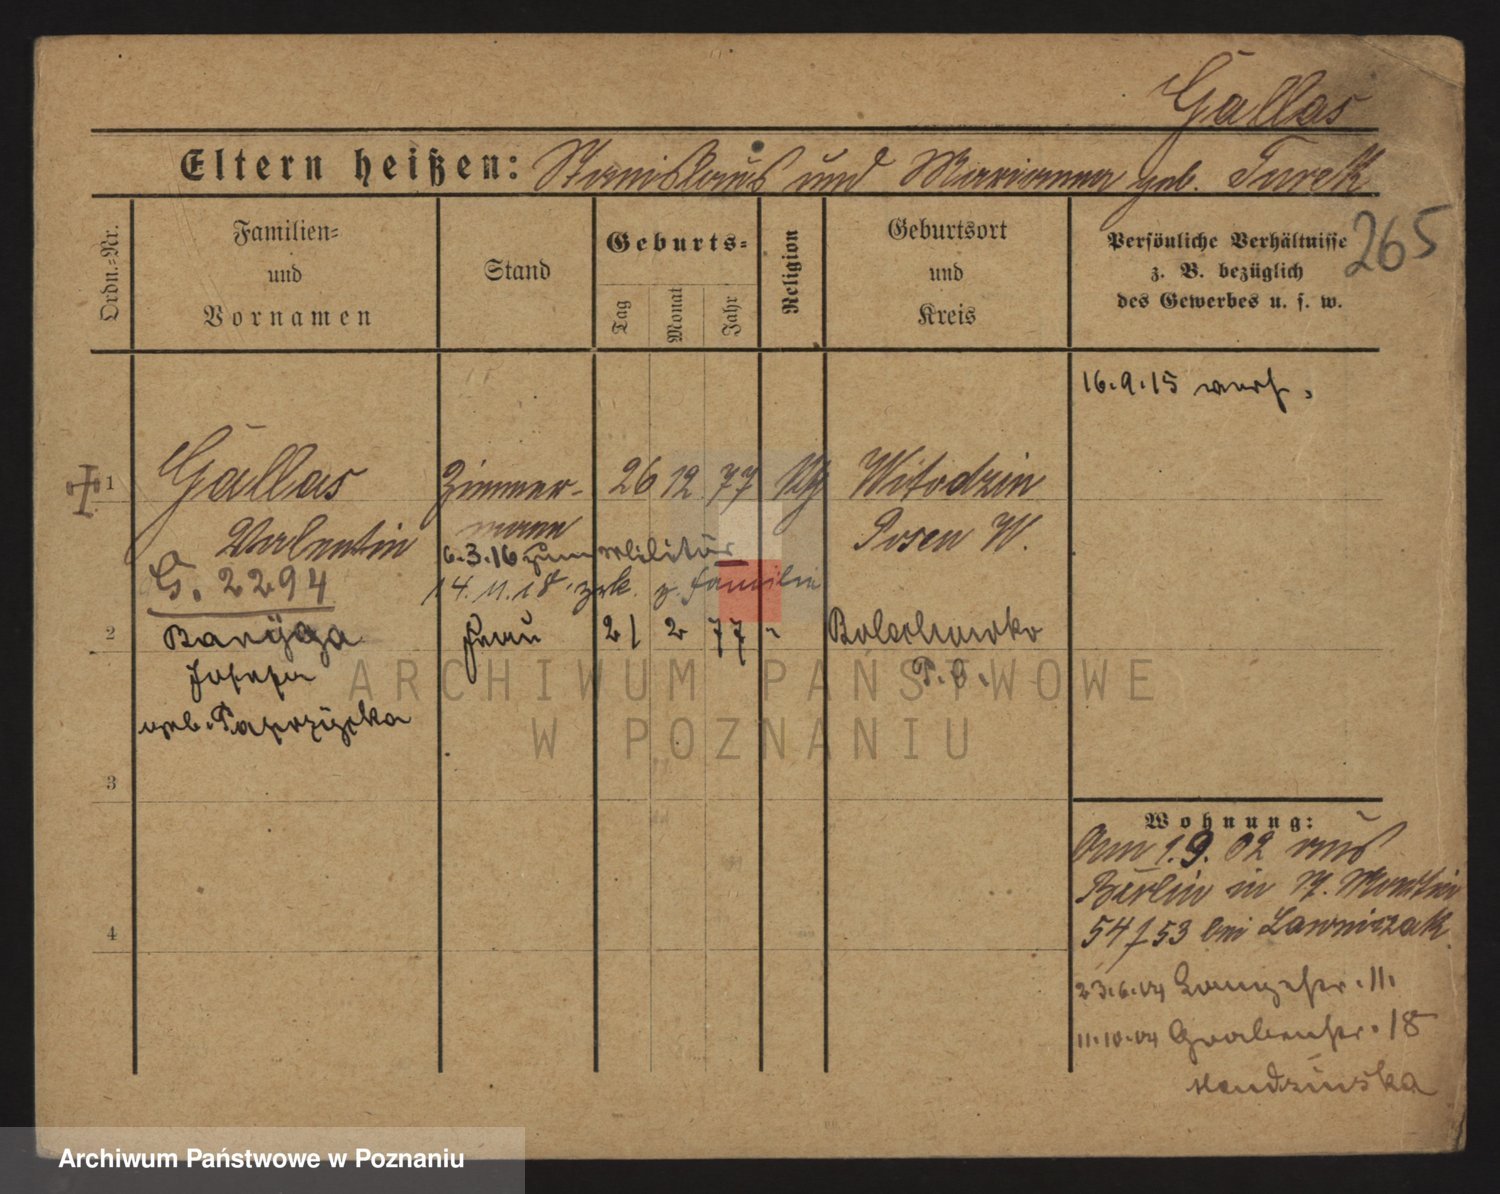 Gallas
Eltern heißen: Stanislaus und Marianna geb. Turek
Ordn.=Nr.
Familien=
und
Vornamen
Stand
Geburts=
Tag
Monat
Jahr
Religion
Geburtsort
und
Kreis
Persönliche Verhältnisse
z. B. bezüglich
des Gewerbes u. s. w.
265
16.9.15
1
Gallas
Valentin
G. 2294
Zimmer-
mann
26 12 77
Posen W.
6.3.16 zum Militär
14.11.18 zrk. z. Familie
2
Josefa
geb.
Frau
21 2 77 "
P. O.
3
4
Wohnung:
Am 1.9.02 aus
Berlin in
54/53 bei Lawniczak
23.6.04 Langestr. 11.
11.10.04 Grabenstr. 18
ARCHIWUM PAŃSTWOWE
W POZNANIU
Archiwum Państwowe w Poznaniu